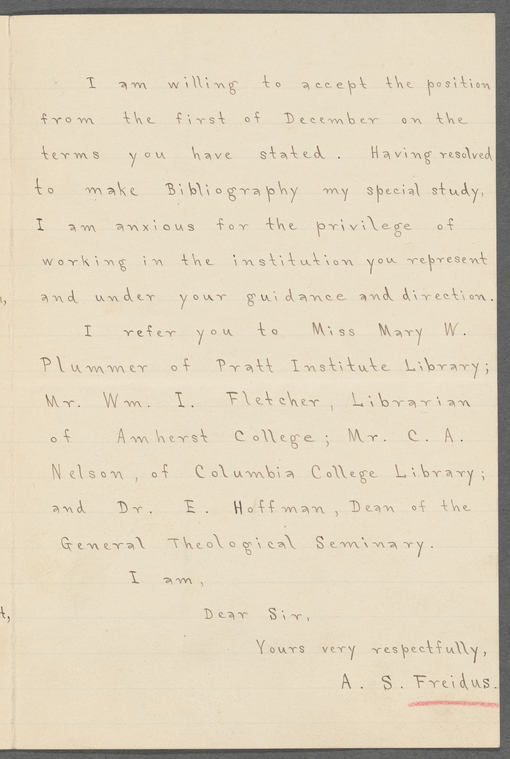 I am willing to accept the position
from the first of December on the
terms you have stated. Having resolved
to make Bibliography my special study,
I am anxious for the privilege of
working in the institution you represent
and under your guidance and direction.
I refer you to Miss Mary W.
Plummer of Pratt Institute Library;
Mr. Wm. I. Fletcher, Librarian
of Amherst College; Mr. C. A.
Nelson, of Columbia College Library;
and Dr. E. Hoffman, Dean of the
General Theological Seminary.
I am,
Dear Sir,
Yours very respectfully,
A. S. Freidus.